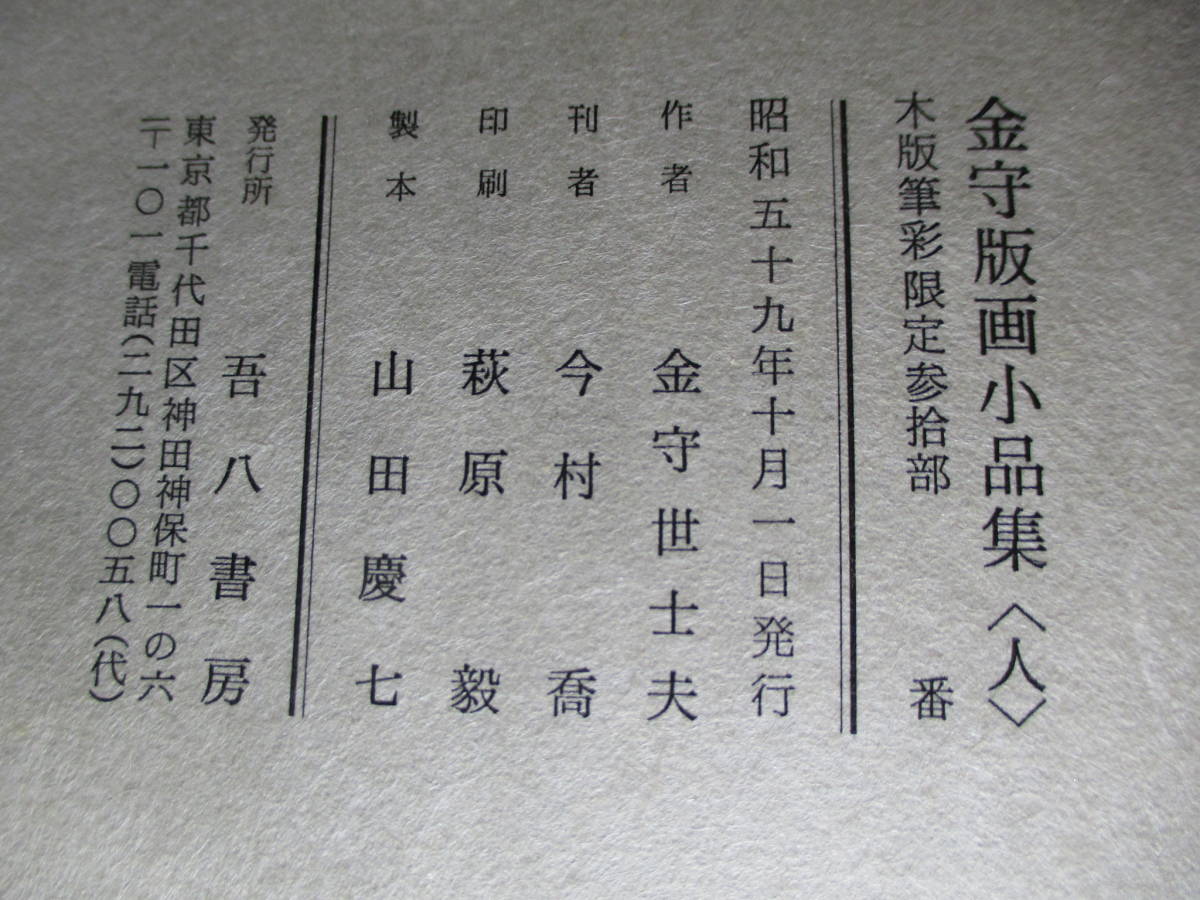 金守版画小品集〈人〉
木版筆彩限定参拾部　番
昭和五十九年十月一日発行
作者　金守世士夫
刊者　今村喬
印刷　萩原毅
製本　山田慶七
発行所　吾八書房
東京都千代田区神田神保町一の六
〒一〇一電話(二九二)〇〇五八(代)